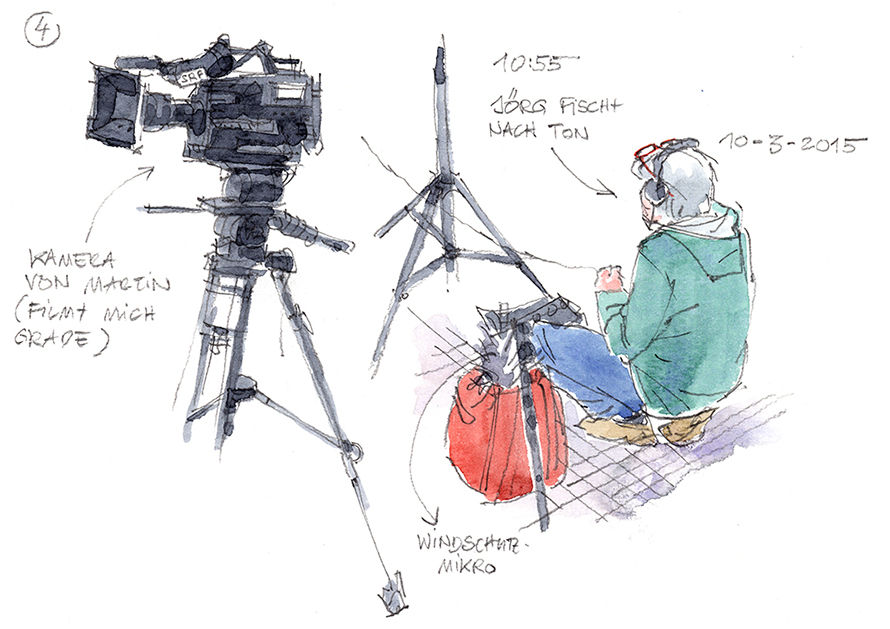 4
SRF
10:55
JÖRG FISCHT
NACH TON
10-3-2015
KAMERA
VON MARTIN
(FILMT MICH
GRADE)
WINDSCHUTZ-
MIKRO